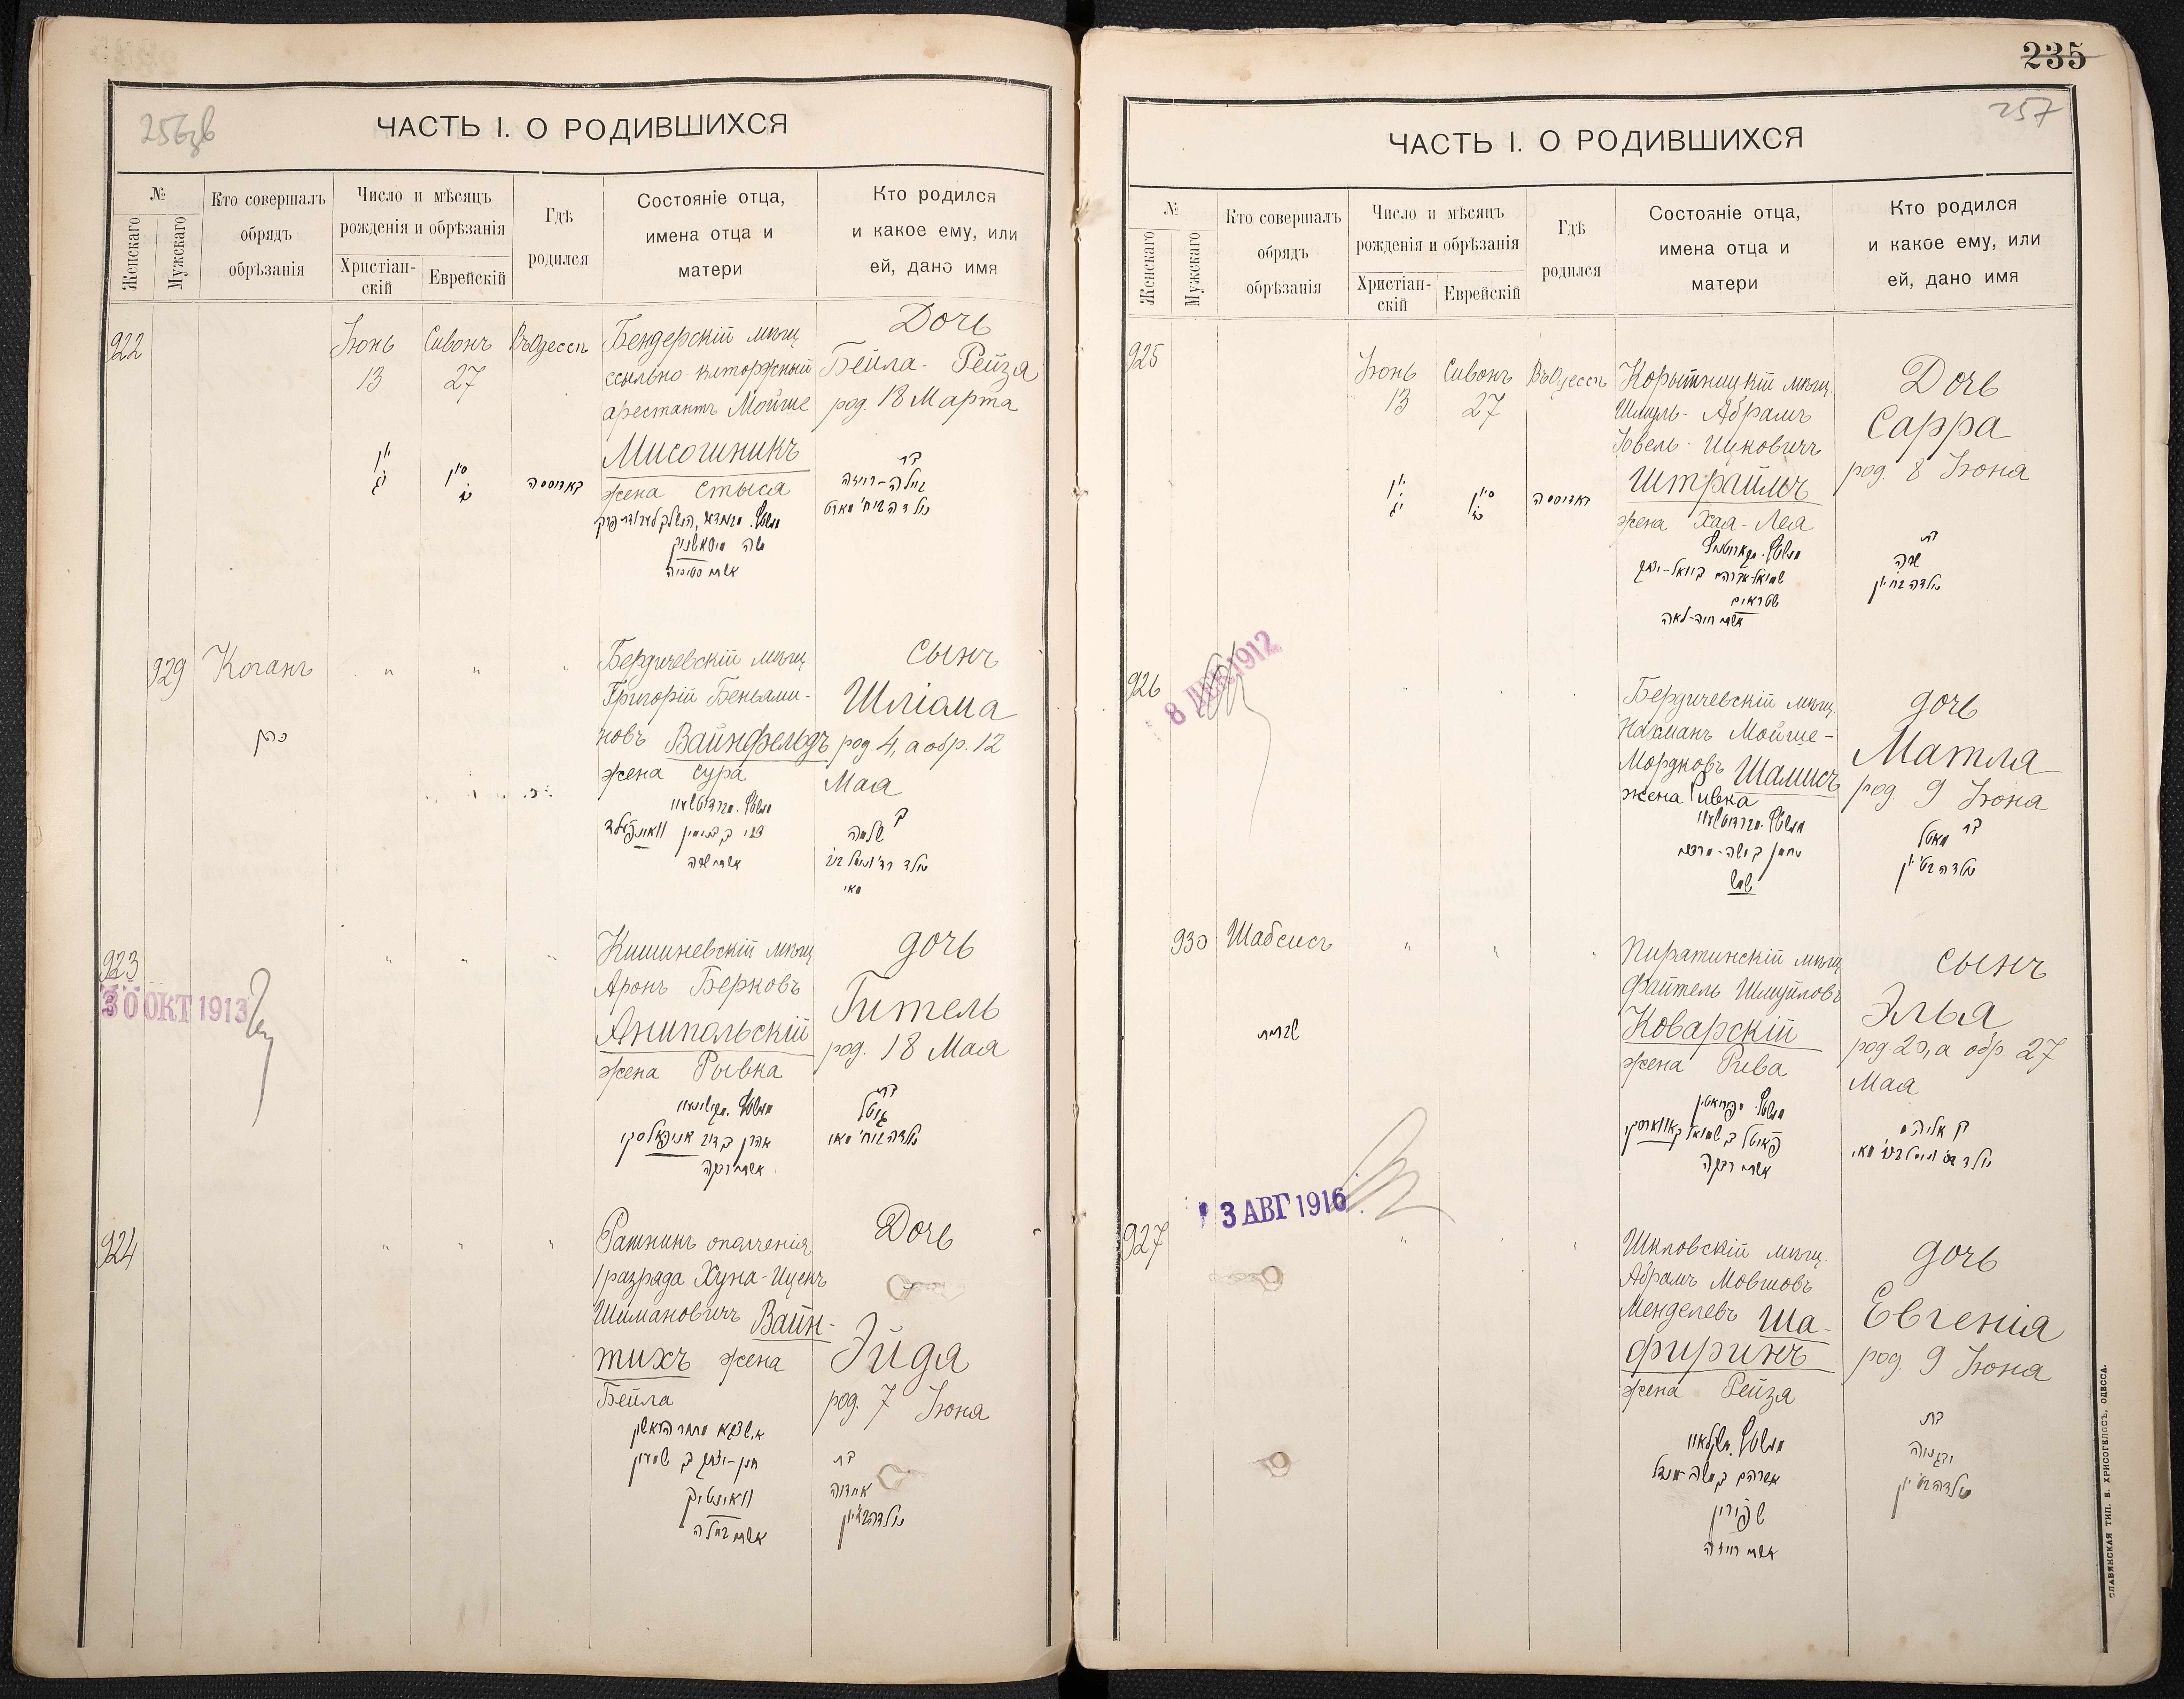 256об
ЧАСТЬ I. О РОДИВШИХСЯ
№
Женскаго
Мужскаго
Кто совершалъ
обрядъ
обрѣзанія
Число и мѣсяцъ
рожденія и обрѣзанія
Христіан-
скій
Еврейскій
Гдѣ
родился
Состояніе отца,
имена отца и
матери
Кто родился
и какое ему, или
ей, дано имя
922
Іюнь
13
Сивонъ
27
Въ Одессѣ
Бендерскій мѣщ.
ссыльно-каторжный
арестантъ Мойше
Мисошникъ
жена Стыся
Дочь
Бейла-Рейзя
род. 18 Марта
באדעססה
משה
בת
ביילה-רייזה
929
Коганъ
"
"
"
Бердичевскій мѣщ
Григорій Беньями-
новъ Вайнфельдъ
жена Сура
сынъ
Шліома
род. 4, а обр. 12
Мая
כהן
אשתו שרה
שלמה
מאי
923
30 ОКТ 1913
"
"
"
Кишиневскій мѣщ
Аронъ Берковъ
Анипольскій
жена Рывка
дочь
Гитель
род. 18 Мая
אשתו רבקה
בת
גיטל
924
"
"
"
Ратникъ ополченія
1 разряда Хуна-Иценъ
Шимановичъ Вайн-
тихъ жена
Бейла
Дочь
Эйдя
род. 7 Іюня
אשתו ביילה
בת
235
257
ЧАСТЬ I. О РОДИВШИХСЯ
№
Женскаго
Мужскаго
Кто совершалъ
обрядъ
обрѣзанія
Число и мѣсяцъ
рожденія и обрѣзанія
Христіан-
скій
Еврейскій
Гдѣ
родился
Состояніе отца,
имена отца и
матери
Кто родился
и какое ему, или
ей, дано имя
925
Іюнь
13
Сивонъ
27
Въ Одессѣ
Корытницкій мѣщ.
Шмуль-Абрамъ
Іовель-Ицковичъ
Штраймъ
жена Хая-Лея
Дочь
Сарра
род. 8 Іюня
באדעססה
אשתו חיה-לאה
בת
שרה
926
8 ДЕК 1912
"
"
Бердичевскій мѣщ.
Нахманъ Мойше-
Мордковъ Шамисъ
жена Ривка
дочь
Матля
род. 9 Іюня
בת מאטל
930
Шабсисъ
"
"
"
Пирятинскій мѣщ
Файтель Шмуйловъ
Коварскій
жена Рива
сынъ
Элья
род. 20, а обр. 27
Мая
אשתו רבקה
927
3 АВГ 1916
"
"
"
Шкловскій мѣщ.
Абрамъ Мовшовъ
Менделевъ Ша-
фиринъ
жена Рейзя
дочь
Евгенія
род. 9 Іюня
שפירין
אשתו רייזה
בת
СЛАВЯНСКАЯ ТИП. Б. ХРИСОГЕЛОСЪ, ОДЕССА.